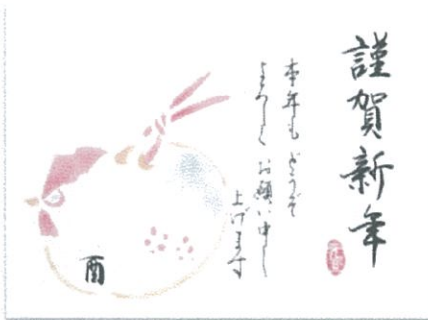 謹賀新年
本年もどうぞ
よろしくお願い申し
上げます
酉